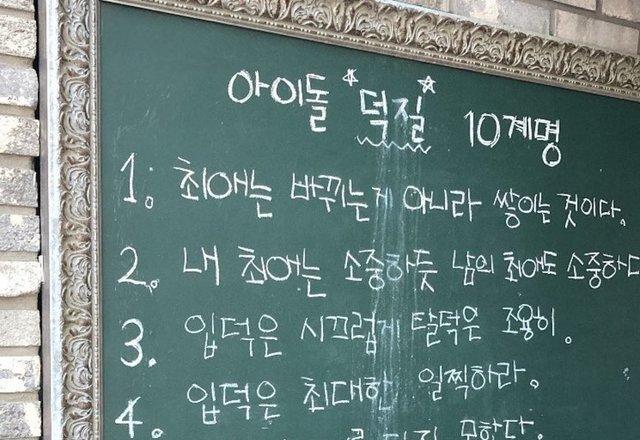 아이돌 *덕질* 10계명
1. 최애는 바뀌는게 아니라 쌓이는 것이다.
2. 내 최애는 소중하듯 남의 최애도 소중하다
3. 입덕은 시끄럽게 탈덕은 조용히.
4. 입덕은 최대한 일찍하라.
못한다.